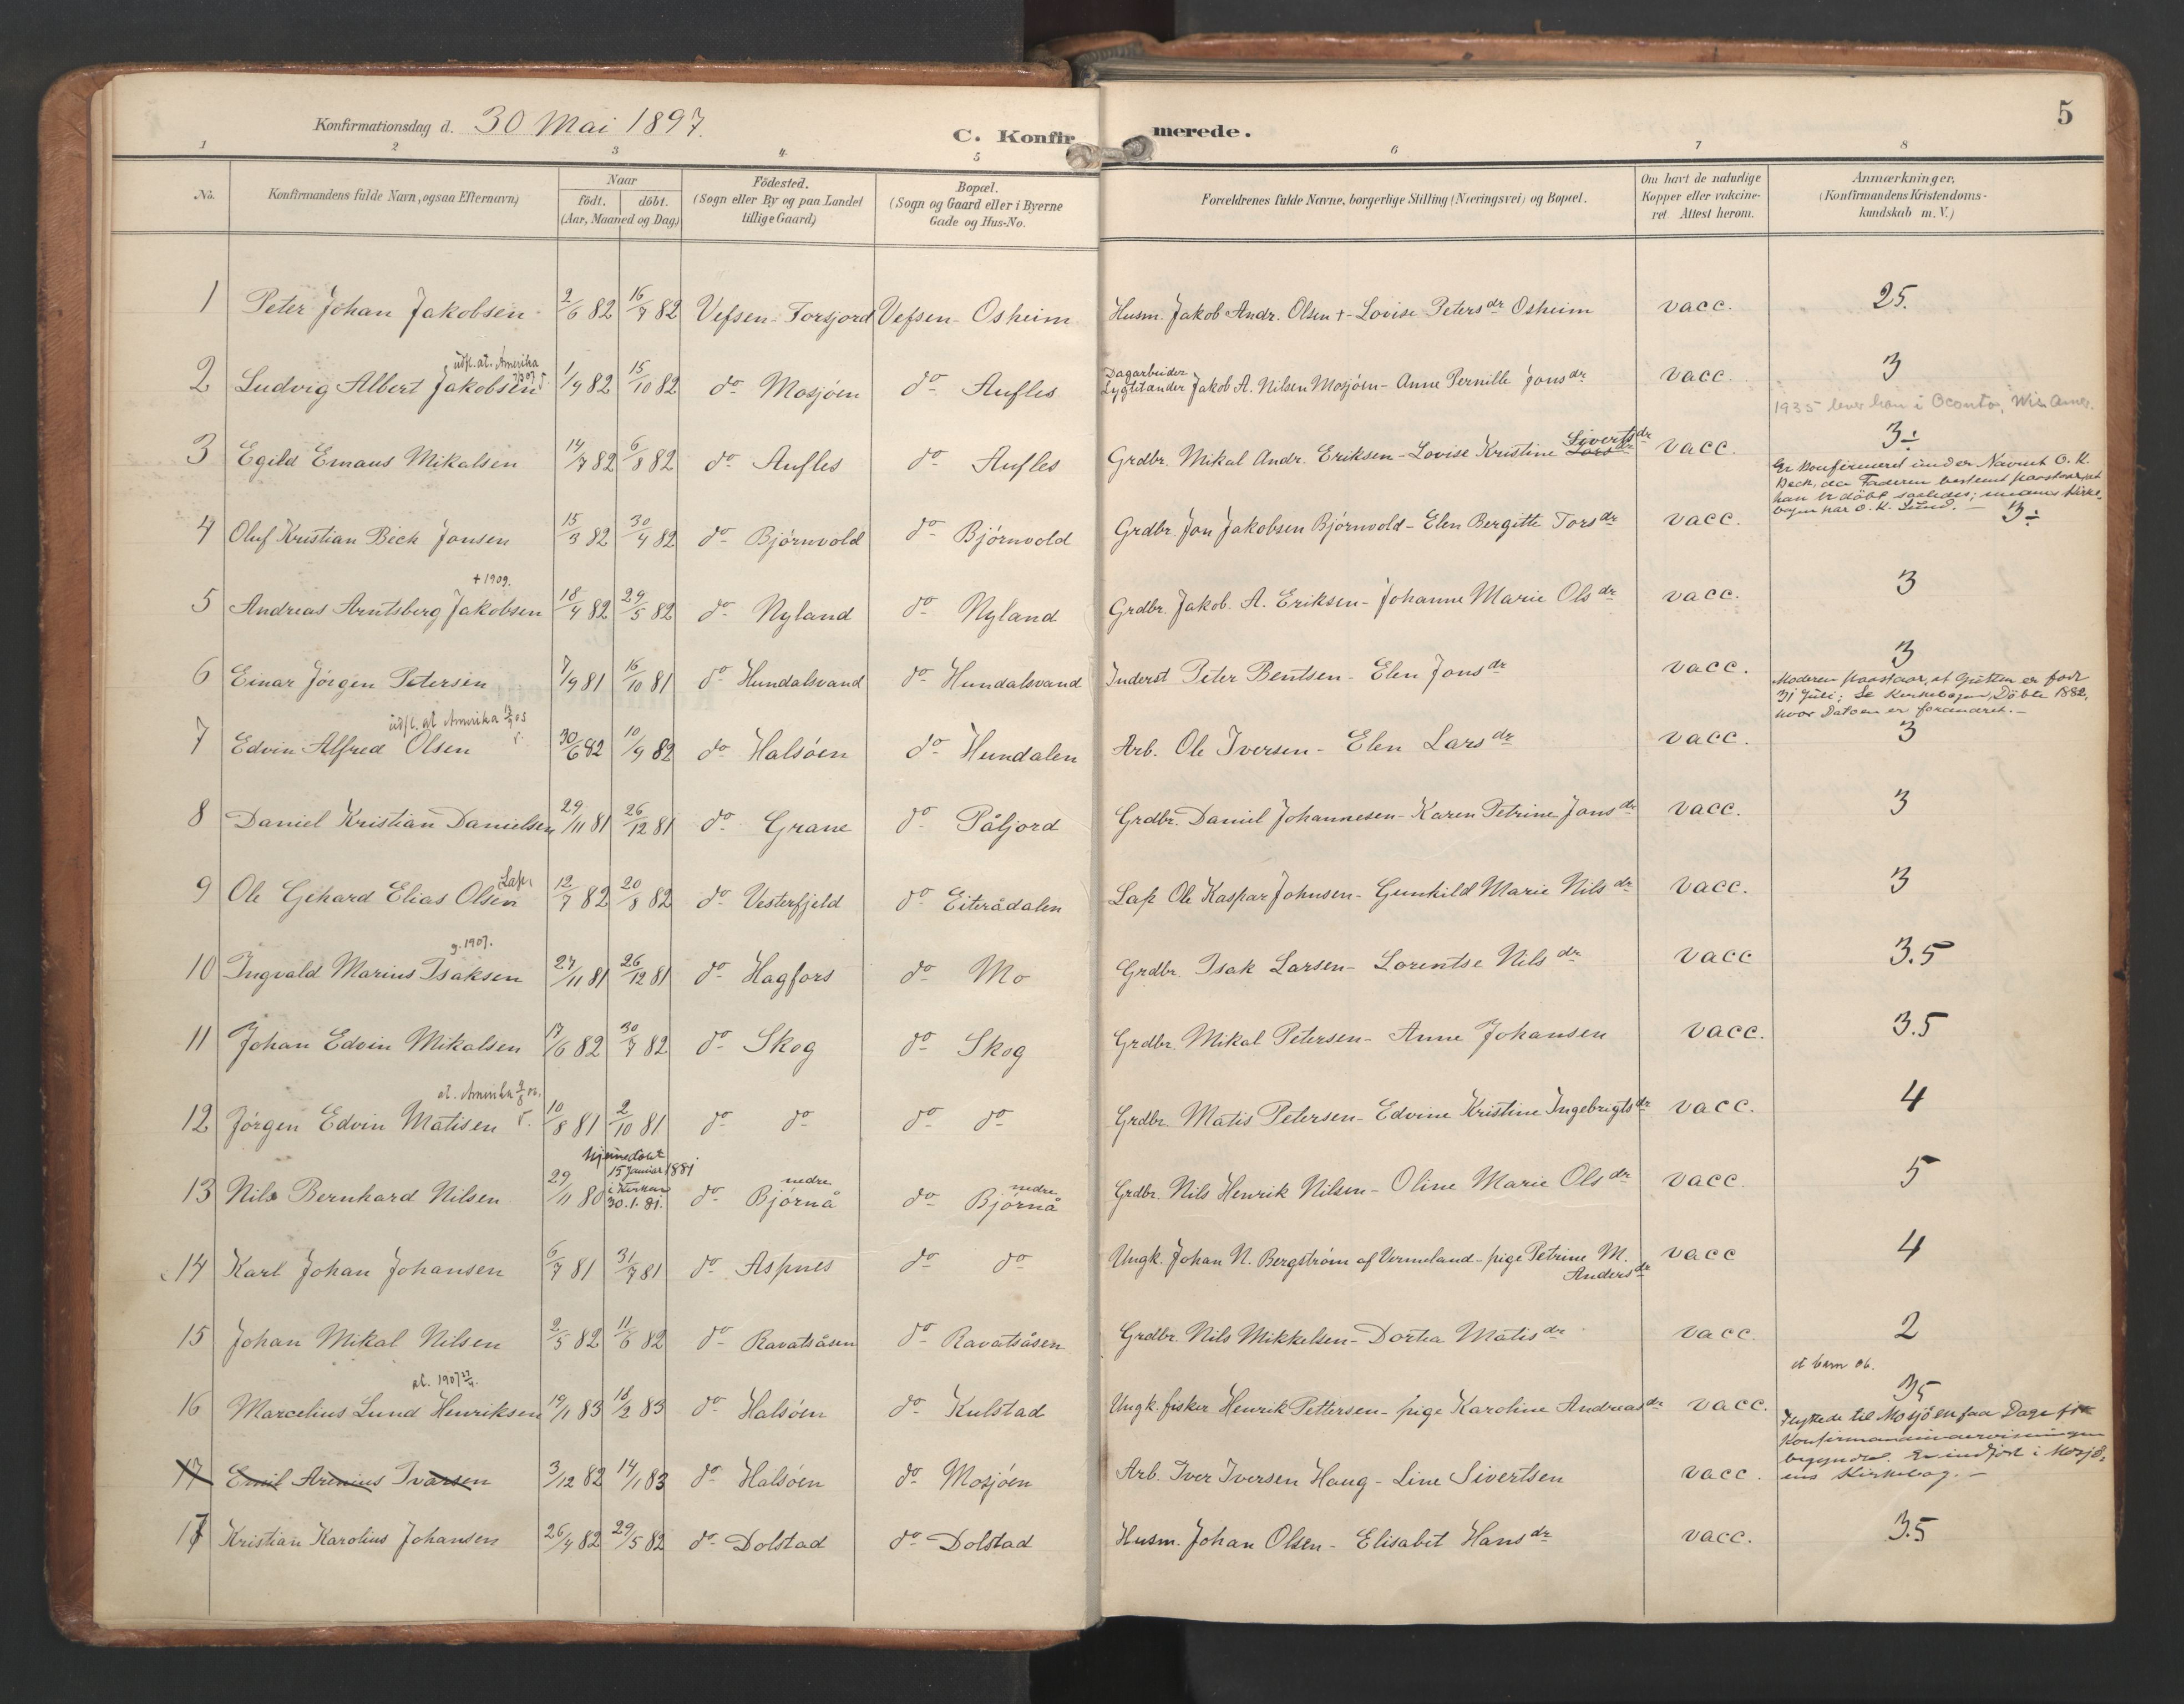 Konfirmationsdag d. 30 Mai 1897.
C. Konfirmerede.
5
1 2 3 4 5 6 7 8
No.
Konfirmandens fulde Navn, ogsaa Efternavn)
Naar
födt. döbt.
(Aar, Maaned og Dag)
Födested.
(Sogn eller By og paa Landet
tillige Gaard)
Bopæl.
(Sogn og Gaard eller i Byerne
Gade og Hus-No.
Forældrenes fulde Navne, borgerlige Stilling (Næringsvei) og Bopæl.
Om havt de naturlige
Kopper eller vakcine-
ret Attest herom.
Anmærkninger,
(Konfirmandens Kristendoms-
kundskab m. V.)
1 Peter Johan Jakobsen 2/6 82 16/7 82 Vefsen - Forsjord Vefsen - Osheim Husm. Jakob Andr. Olsen + - Lovise Petersdr Osheim vacc. 25.
udfl. at. Amerika
2 Ludvig Albert Jakobsen 1/9 82 15/10 82 do Mosjöen do Aufles Dagarbeider Lygtetænder Jakob A. Nilsen Mosjöen - Anne Pernille Jonsdr vacc. 3
1935 lever han i Oconto, Wis. Amer.
3 Egild Emaus Mikalsen 14/7 82 6/8 82 do Aufles do Aufles Grdbr. Mikal Andr. Eriksen - Lovise Kristine Larsdr Sivertsdr vacc. 3÷
Er konfirmeret under Navnet O. K.
Beck, da Faderen bestemt paastaar, at
han er döbt saaledes; Kirke-
bogen har O. K. Lund. -
4 Oluf Kristian Beck Jonsen 15/3 82 30/4 82 do Björnvold do Björnvold Grdbr. Jon Jakobsen Björnvold - Elen Bergitte Torsdr vacc. 3÷
+ 1909.
5 Andreas Arntsberg Jakobsen 18/4 82 29/5 82 do Nyland do Nyland Grdbr. Jakob. A. Eriksen - Johanne Marie Olsdr vacc. 3
6 Einar Jörgen Petersen 7/9 81 16/10 81 do Hundalsvand do Hundalsvand Inderst Peter Bentsen - Elen Jonsdr vacc. 3
Moderen paastaar, at Gutten er född
31 Juli; Se Kirkebogen, Döbte 1882,
hvor Datoen er forandret. -
udfl. at Amerika
7 Edvin Alfred Olsen 30/6 82 10/9 82 do Halsöen do Hundalen Arb. Ole Iversen - Elen Larsdr vacc. 3
8 Daniel Kristian Danielsen 29/11 81 26/12 81 do Grane do Påljord Grdbr. Daniel Johannesen - Karen Petrine Jonsdr vacc. 3
9 Ole Gehard Elias Olsen Lap. 12/7 82 20/8 82 do Vesterfjeld do Eiterådalen Lap Ole Kaspar Johnsen - Gunhild Marie Nilsdr vacc. 3
g. 1907.
10 Ingvald Marius Isaksen 27/11 81 26/12 81 do Hagfors do Mo Grdbr. Isak Larsen - Lorentse Nilsdr vacc 3.5
11 Johan Edvin Mikalsen 17/6 82 30/7 82 do Skog do Skog Grdbr. Mikal Petersen - Anne Johansen vacc. 3.5
at. Amerika
12 Jörgen Edvin Matisen 10/8 81 2/10 81 do do do do Grdbr. Matis Petersen - Edvine Kristine Ingebrigtsdr vacc. 4
13 Nils Bernhard Nilsen 29/11 80 hjemmedöbt 15 Januar 1881 i Kirken 30.1.81. do nedre Björnå do nedre Björnå Grdbr. Nils Henrik Nilsen - Oline Marie Olsdr vacc. 5
14 Karl Johan Johansen 6/7 81 31/7 81 do Aspnes do do Ungk. Johan N. Bergström af Vermeland - pige Petrine M. Andersdr vacc 4
15 Johan Mikal Nilsen 2/5 82 11/6 82 do Ravatsåsen do Ravatsåsen Grdbr. Nils Mikkelsen - Dortea Matisdr vacc. 2
at. 1907
et barn 06.
16 Marcelius Lund Henriksen 19/1 83 18/2 83 do Halsöen do Kulstad Ungk. fisker Henrik Pettersen - pige Karoline Andreasdr vacc. 35
17 Emil Arenius Ivarsen 3/12 82 14/1 83 do Halsöen do Mosjöen Arb. Iver Iversen Haug - Line Sivertsen vacc.
Flyttede til Mosjöen faa Dage för
Konfirmandundervisningen
begyndte. Er indfört i Mosjö-
ens Kirkebog. -
17 Kristian Karolius Johansen 26/4 82 29/5 82 do Dolstad do Dolstad Husm. Johan Olsen - Elisabet Hansdr vacc. 3.5